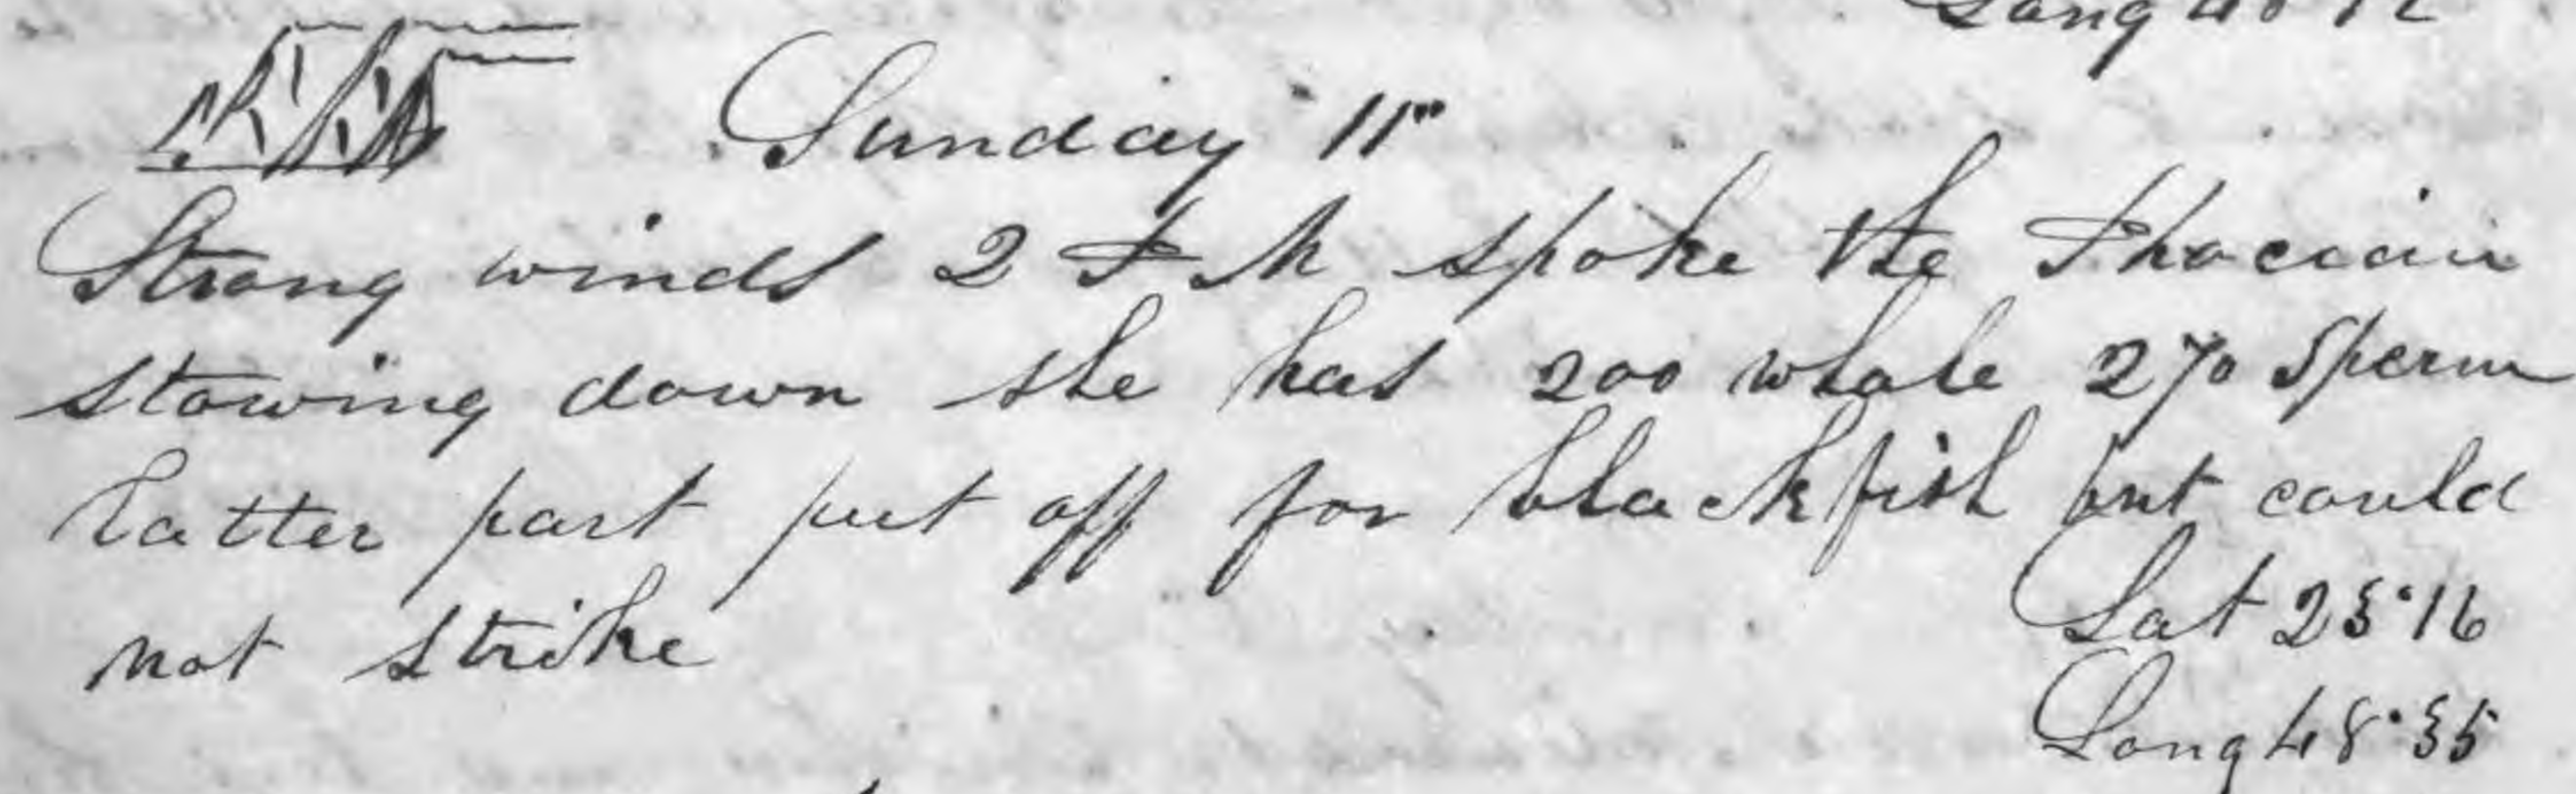 Long 48 12
Sunday 11"
Strong winds 2 P M spoke the Phocian
stowing down she has 200 whale 270 Sperm
Latter part put off for blackfish but could
not strike
Lat 25·16
Long 48·35